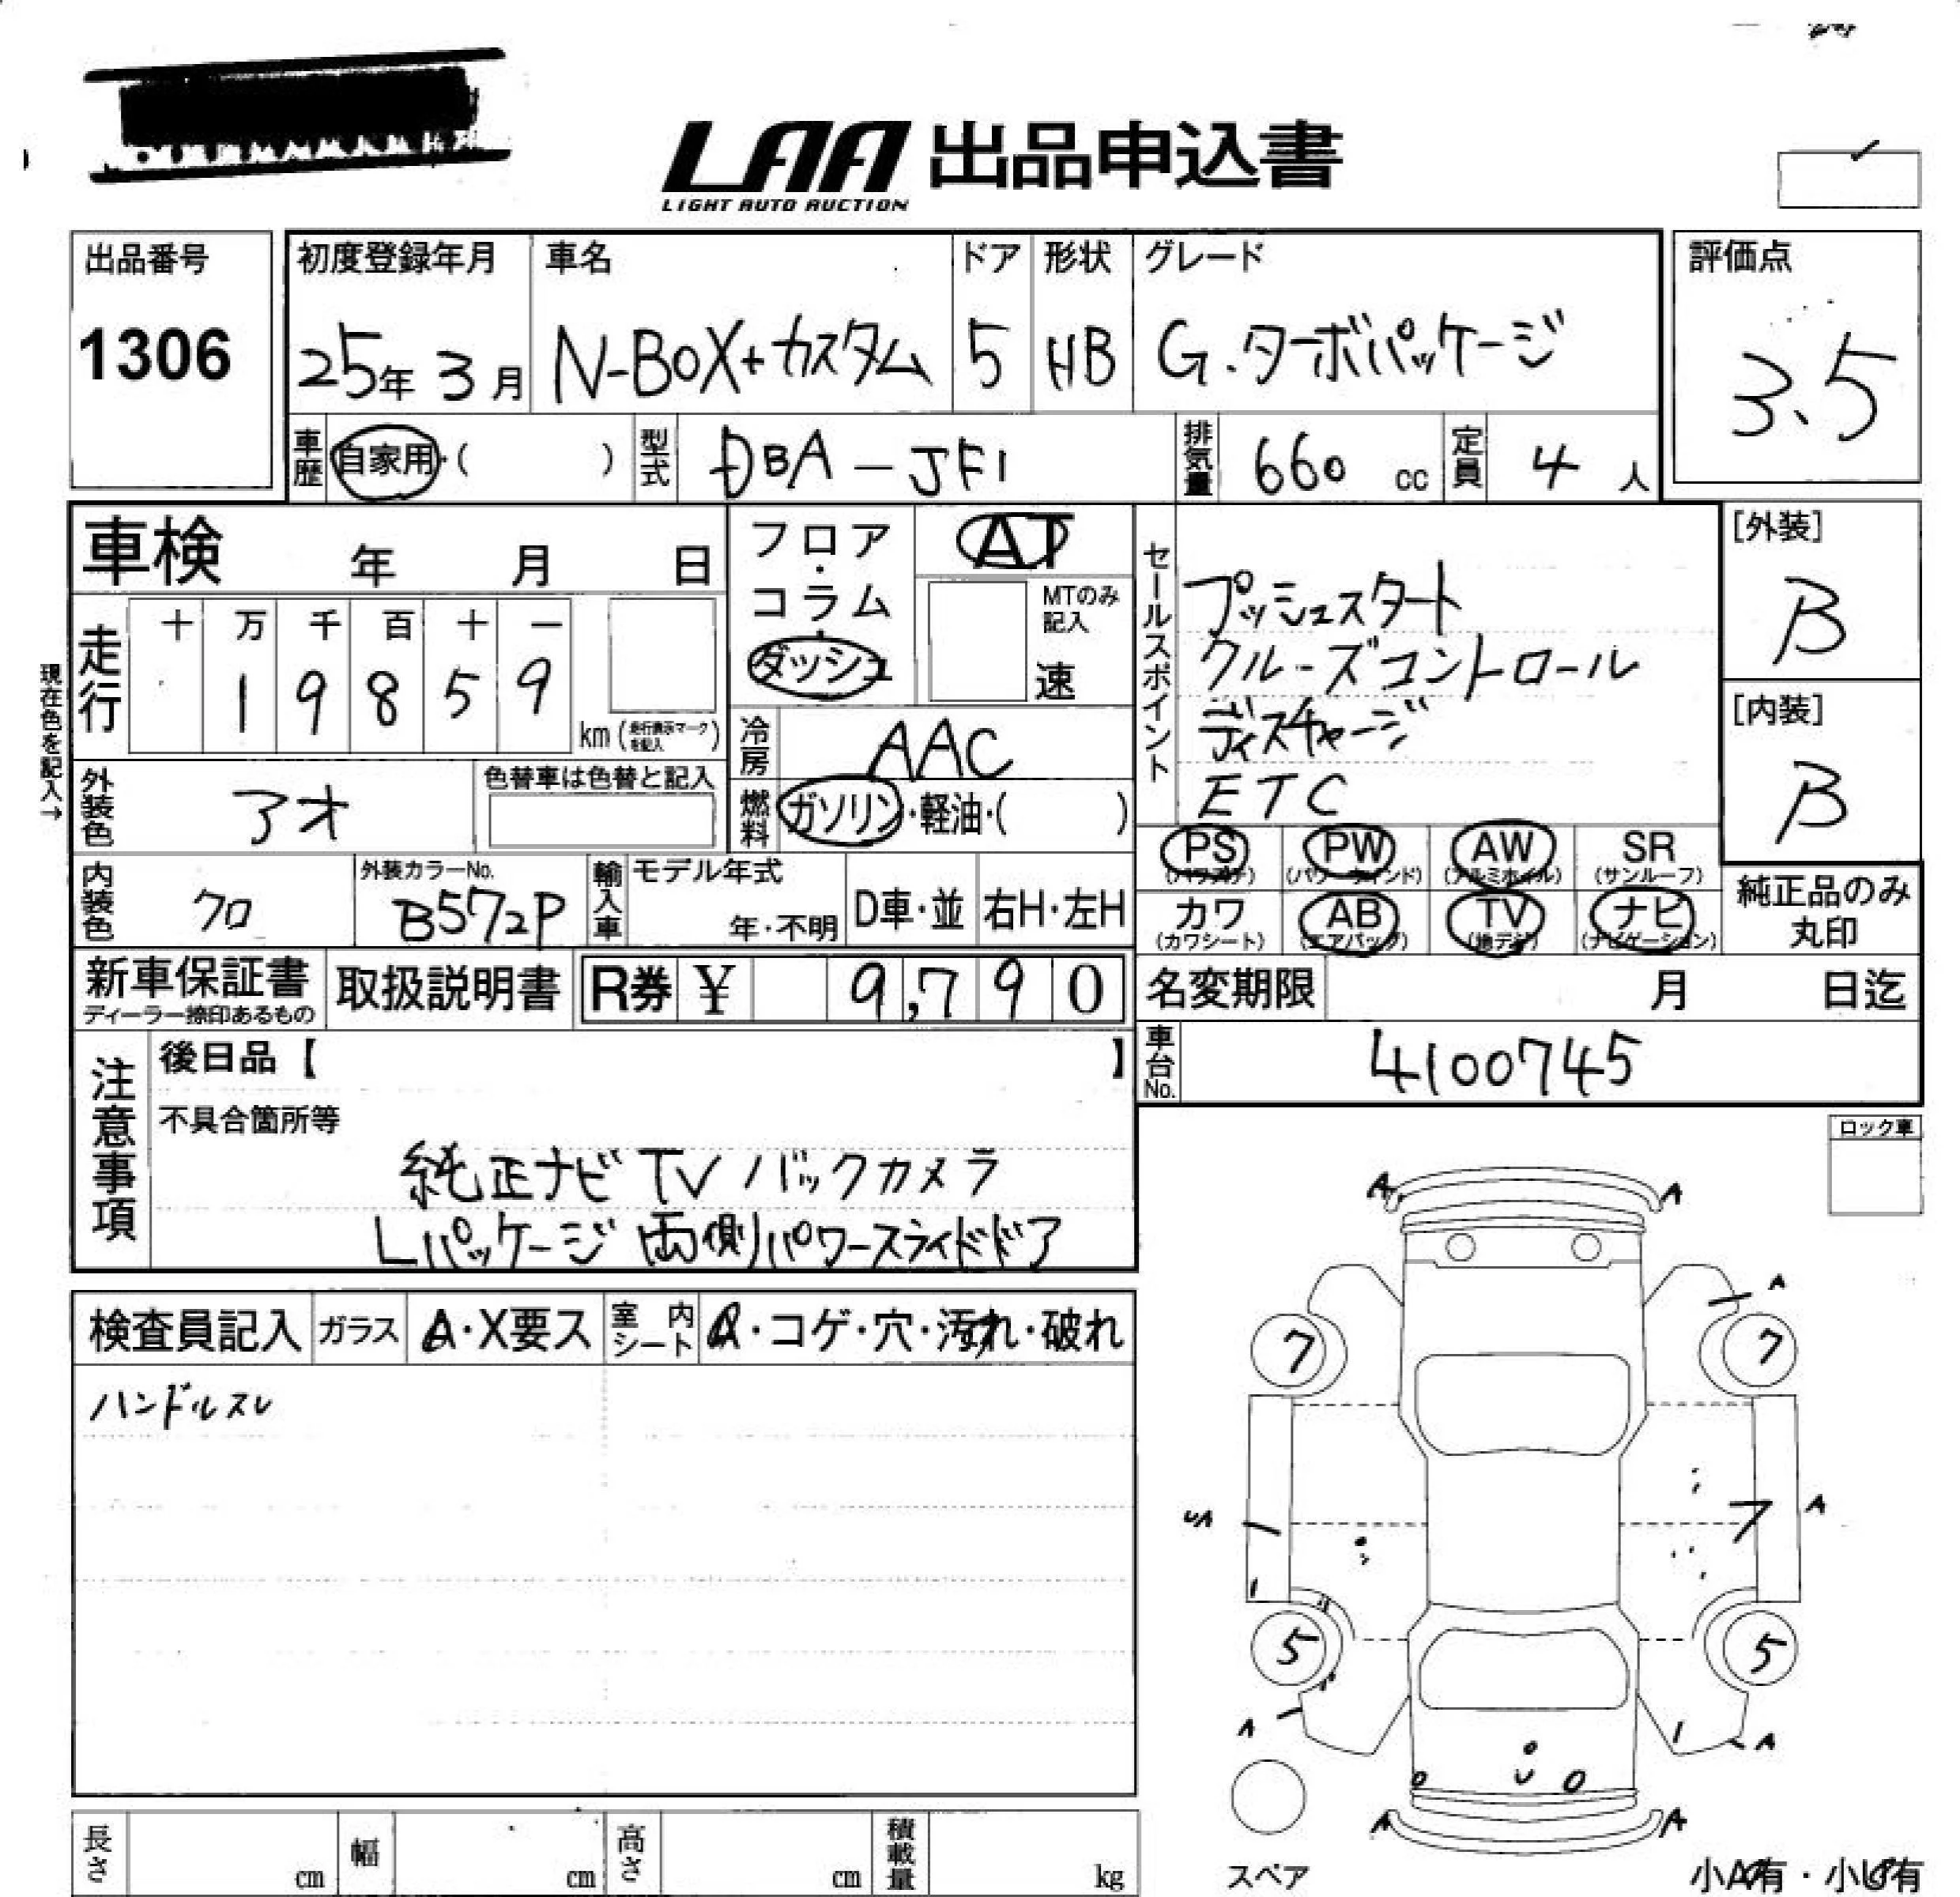 LAA 出品申込書
LIGHT AUTO AUCTION
出品番号
1306
初度登録年月
25年 3月
車名
N-BOX+カスタム
ドア
5
形状
HB
グレード
G.ターボパッケージ
評価点
3.5
車歴 自家用・( )
型式 DBA-JF1
排気量 660 cc
定員 4 人
車検 年 月 日
フロア・コラム・ダッシュ
AT
MTのみ記入
速
セールスポイント
プッシュスタート
クルーズコントロール
ディスチャージ
ETC
[外装]
B
[内装]
B
現在色を記入→
走行
十 万 千 百 十 一
1 9 8 5 9
km
冷房 AAC
燃料 ガソリン・軽油・( )
外装色 アオ
色替車は色替と記入
内装色 クロ
外装カラーNo.
B572P
輸入車
モデル年式
年・不明
D車・並
右H・左H
PS (パワステ)
PW (パワーウインド)
AW (アルミホイル)
SR (サンルーフ)
カワ (カワシート)
AB (エアバッグ)
TV (地デジ)
ナビ (ナビゲーション)
純正品のみ
丸印
新車保証書
ディーラー捺印あるもの
取扱説明書
R券 ¥ 9,790
名変期限 月 日迄
車台No. 4100745
注意事項
後日品【 】
不具合箇所等
純正ナビ TV バックカメラ
Lパッケージ 両側パワースライドドア
ロック車
検査員記入
ガラス A・X要ス
室内シート A・コゲ・穴・汚れ・破れ
ハンドルスレ
A A
A
7 7
A
5 5
A A
A A
スペア
長さ cm
幅 cm
高さ cm
積載量 kg
小A有・小U有